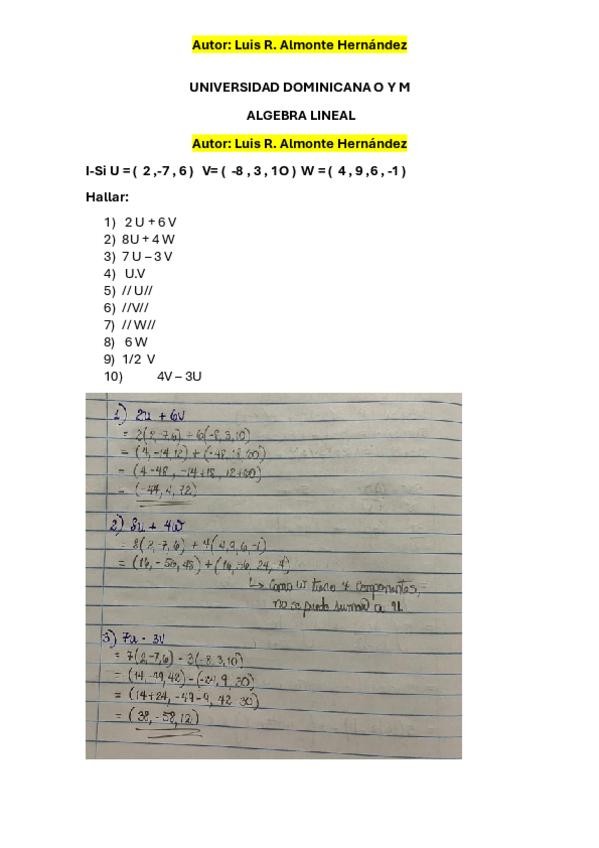 Autor: Luis R. Almonte Hernández
UNIVERSIDAD DOMINICANA O Y M
ALGEBRA LINEAL
Autor: Luis R. Almonte Hernández
I-Si U = ( 2 ,-7 , 6 ) V= ( -8 , 3 , 1O ) W = ( 4 , 9 ,6 , -1 )
Hallar:
1) 2 U + 6 V
2) 8U + 4 W
3) 7 U – 3 V
4) U.V
5) // U//
6) //V//
7) // W//
8) 6 W
9) 1/2 V
10) 4V – 3U
1) 2u + 6v
= 2(2,-7,6) + 6(-8,3,10)
= (4,-14,12) + (-48,18,60)
= (4-48, -14+18, 12+60)
= (-44, 4, 72)
2) 8u + 4w
= 8(2,-7,6) + 4(4,9,6,-1)
= (16, -56, 48) + (16, 36, 24, -4)
↳ Como w tiene 4 componentes,
no se puede sumar a u
3) 7u - 3v
= 7(2,-7,6) - 3(-8,3,10)
= (14,-49,42) - (-24, 9, 30)
= (14+24, -49-9, 42-30)
= (38, -58, 12)